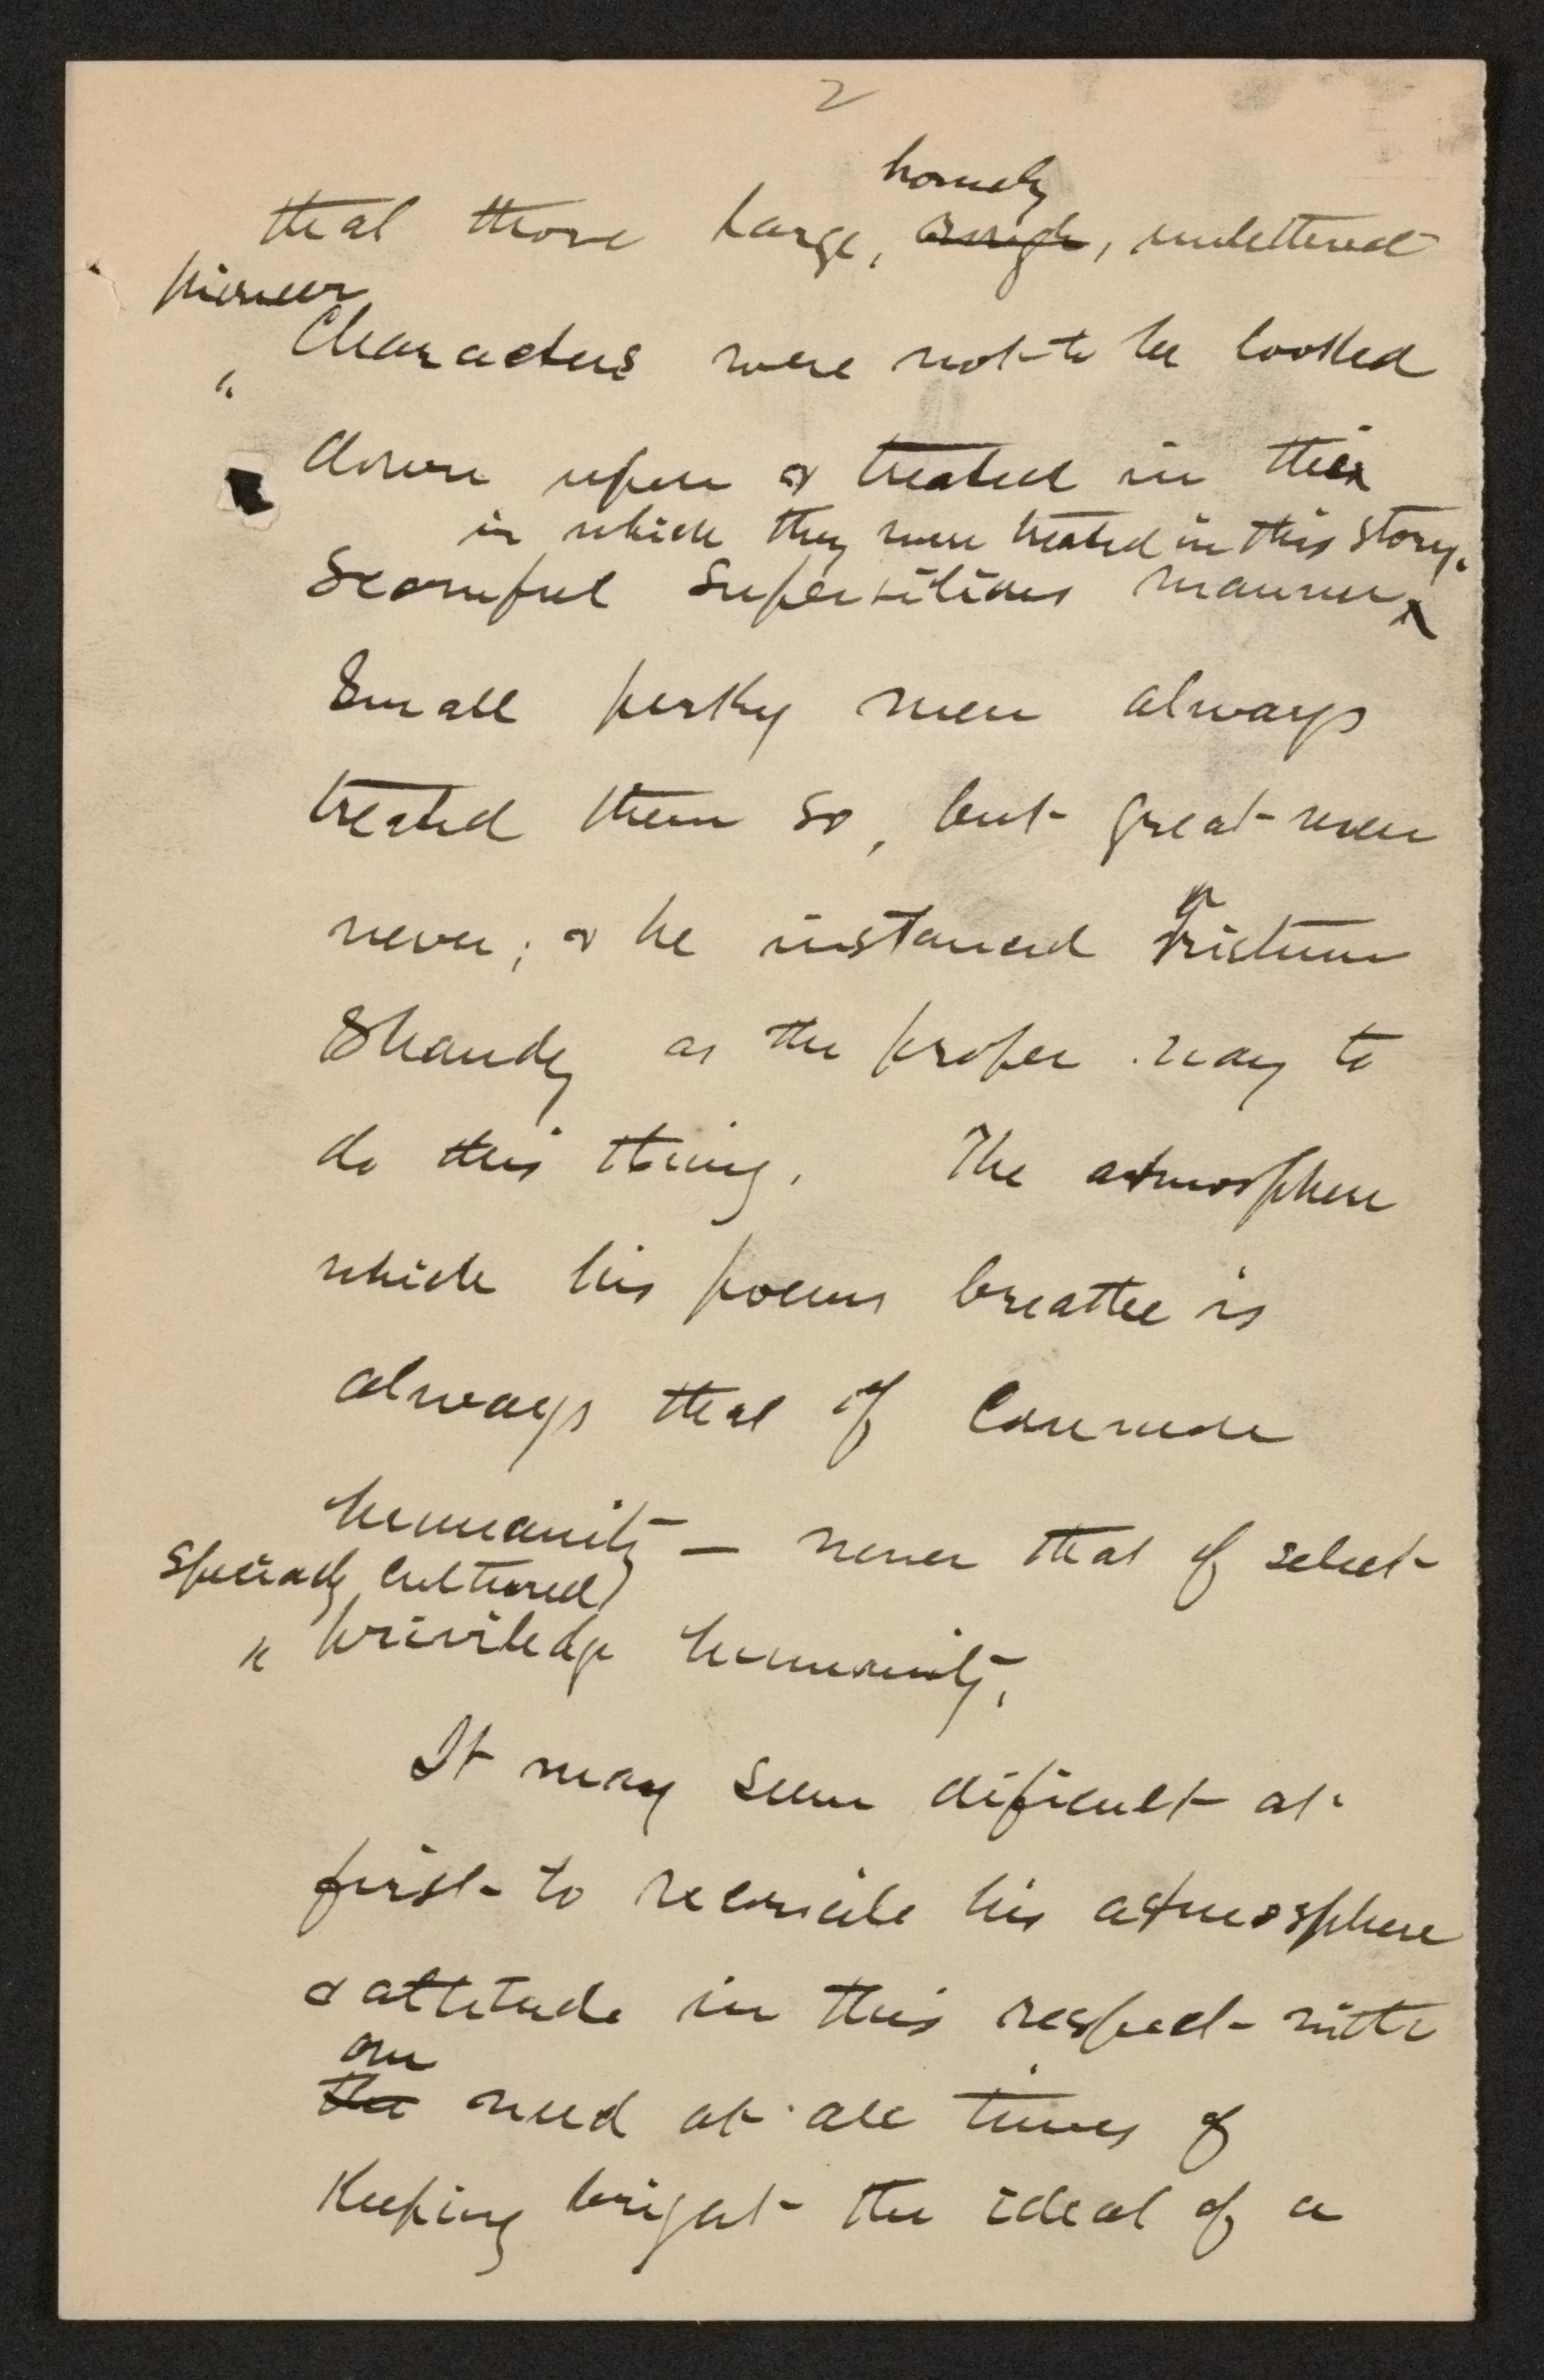 2
homely
that those large, rough, unlettered
pioneer
Characters were not to be looked
down upon & treated in the
in which they were treated in this story.
Scornful supercilious manner
Small perky men always
treated them so, but great men
never; & he instanced Tristum
Shandy as the proper way to
do this thing. The atmosphere
which his poems breathe is
always that of Common
humanity — never that of select
Specially cultured
priviledge humanity.
It may seem dificult at
first to reconcile his atmosphere
& attitude in this respect with
our
the need at all times of
Keeping bright the ideal of a